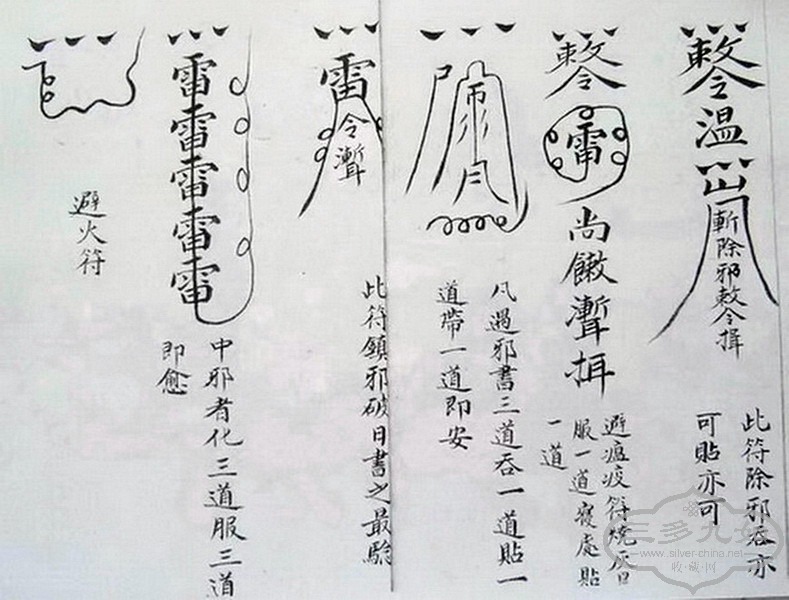 敕令
溫
斬除邪敕令揖
此符除邪吞亦
可貼亦可
敕令
雷
尚
避瘟疫符燒灰口
服一道寢處貼
一道
凡遇邪書三道吞一道貼一
道帶一道即安
雷
令
此符鎮邪破日書之最驗
雷
雷
雷
雷
雷
中邪者化三道服三道
即愈
避火符
三多九如
www.silver-china.net
收·藏·网